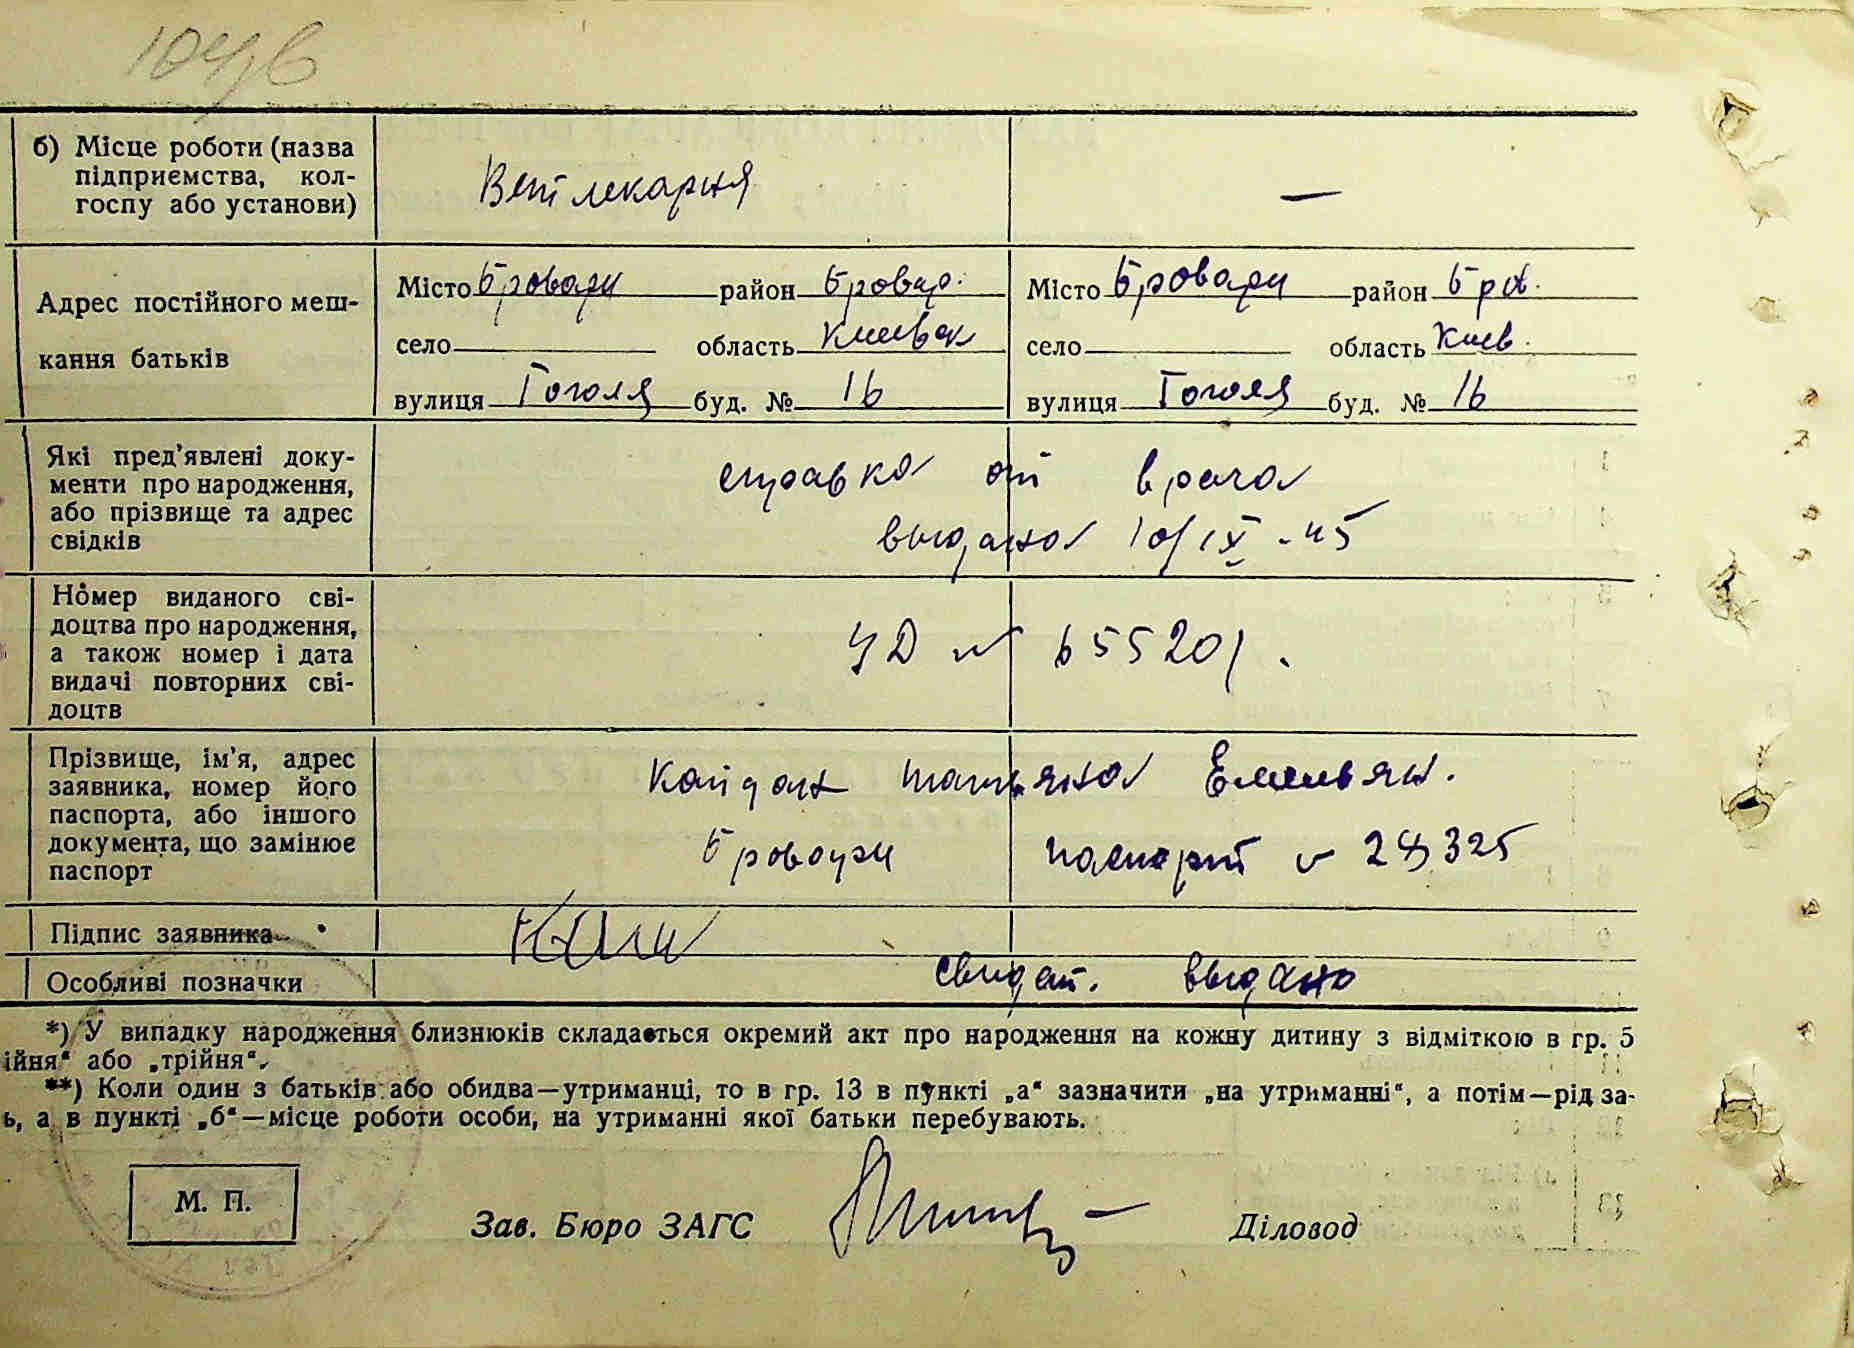 б) Місце роботи (назва
підприємства, кол-
госпу або установи)
Ветлекарня
—
Адрес постійного меш-
кання батьків
Місто Бровари район Бровар. Місто Бровари район Бр.
село область Киевск село область Киев.
вулиця Гоголя буд. № 16 вулиця Гоголя буд. № 16
Які пред'явлені доку-
менти про народження,
або прізвище та адрес
свідків
справка от врача
выдана 10/IX-45
Номер виданого сві-
доцтва про народження,
а також номер і дата
видачі повторних сві-
доцтв
УД № 655201.
Прізвище, ім'я, адрес
заявника, номер його
паспорта, або іншого
документа, що замінює
паспорт
Кайдан Татьяна Емельян.
Бровари паспорт №
Підпис заявника
Особливі позначки
свидет. выдано
*) У випадку народження близнюків складається окремий акт про народження на кожну дитину з відміткою в гр. 5
ійня“ або „трійня“.
**) Коли один з батьків або обидва—утриманці, то в гр. 13 в пункті „а“ зазначити „на утриманні“, а потім—рід за-
ь, а в пункті „б“—місце роботи особи, на утриманні якої батьки перебувають.
М. П.
Зав. Бюро ЗАГС Діловод